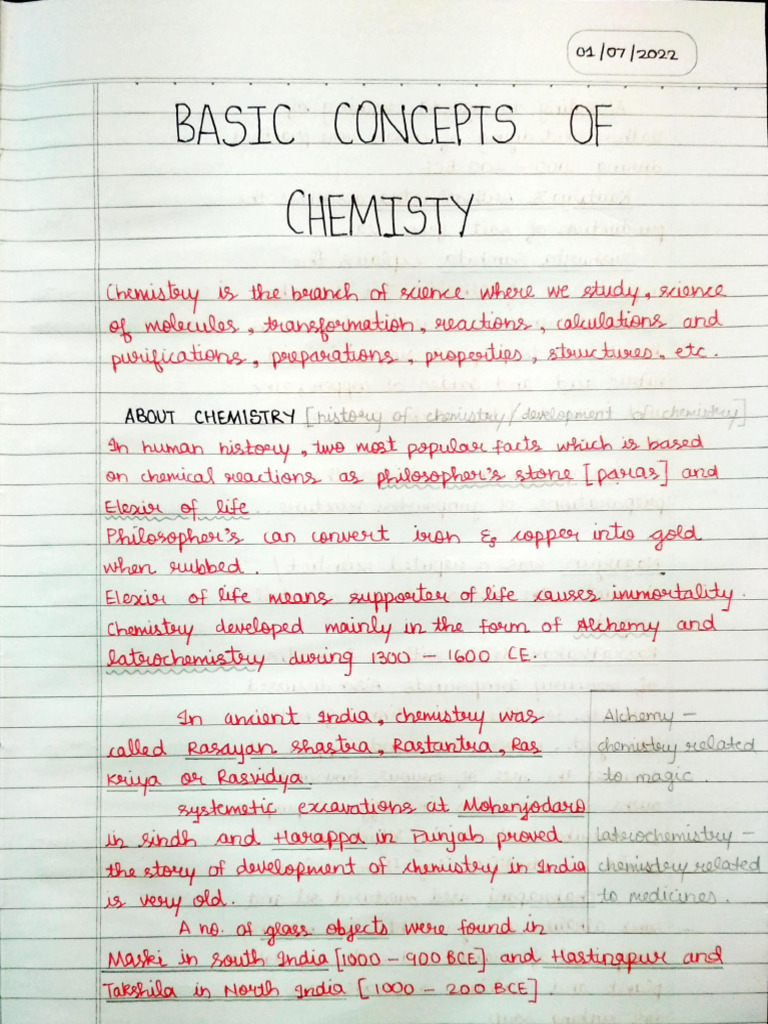 01/07/2022
BASIC CONCEPTS OF
CHEMISTY
Chemistry is the branch of science where we study, science
of molecules, transformation, reactions, calculations and
purifications, preparations, properties, structures, etc.
ABOUT CHEMISTRY [history of chemistry/development of chemistry]
In human history, two most popular facts which is based
on chemical reactions as philosopher's stone [paras] and
Elexir of life
Philosopher's can convert iron & copper into gold
when rubbed.
Elexir of life means supporter of life causes immortality.
Chemistry developed mainly in the form of Alchemy and
laterochemistry during 1300 – 1600 CE.
In ancient India, chemistry was
called Rasayan shastra, Rastantra, Ras
Kriya or Rasvidya.
systemetic excavations at Mohenjodaro
in sindh and Harappa in Punjab proved
the story of development of chemistry in India
is very old.
Alchemy –
chemistry related
to magic.
laterochemistry –
chemistry related
to medicines.
A no. of glass objects were found in
Maski in south India [1000 – 900 BCE] and Hastinapur and
Takshila in North India [1000 – 200 BCE].